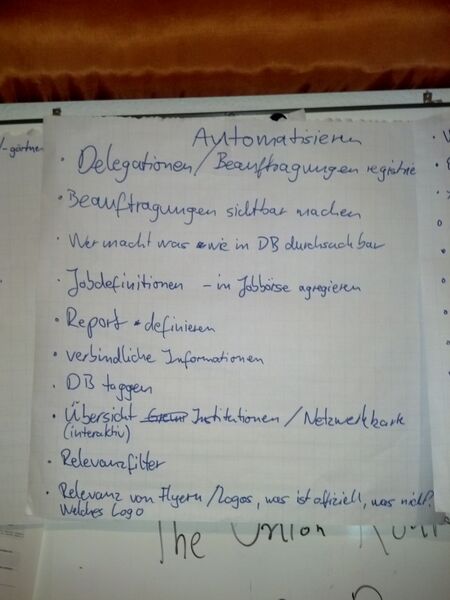 Automatisieren
• Delegationen/Beauftragungen registrie
• Beauftragungen sichtbar machen
• Wer macht was wie in DB durchsuchbar
• Jobdefinitionen – in Jobbörse agregieren
• Report definieren
• verbindliche Informationen
• DB taggen
• Übersicht Institutionen / Netzwerkkarte
(interaktiv)
• Relevanzfilter
• Relevanz von Flyern/Logos, was ist offiziell, was nicht?
Welches Logo
-gärtner
The Union